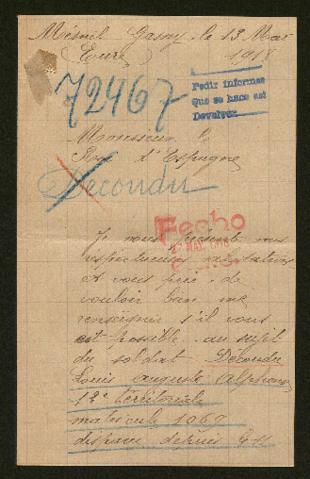 Mésnil Gasny le 13 Mai
Eure 1918
72467
Pedir informes
que se hace est
Devolver
Monsieur le
Roi d'Espagne
Decondu
Fecho
MAY. 1918
Je vous présente mes
respectueuses salutations
et vous prie de
vouloir bien me
renseigner s'il vous
est possible au sujet
du soldat Décondu
Louis auguste Alphonse
12e territoriale
matricule 1069
disparu depuis